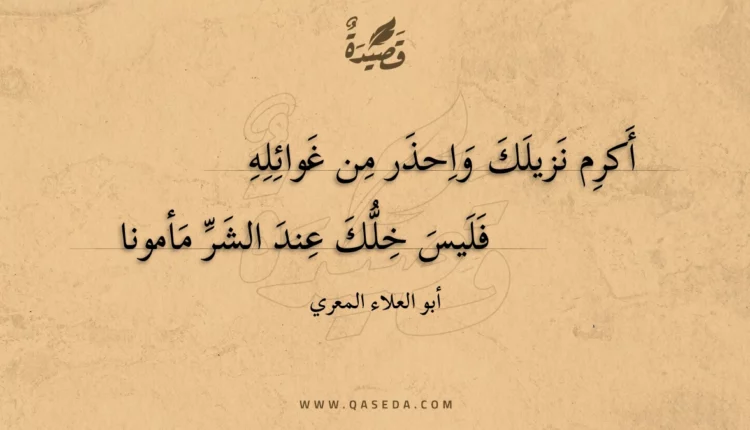 قَصِيدَةٌ
أَكرِم نَزيلَكَ وَاِحذَر مِن غَوائِلِهِ
فَلَيسَ خِلُّكَ عِندَ الشَرِّ مَأمونا
أبو العلاء المعري
WWW.QASEDA.COM